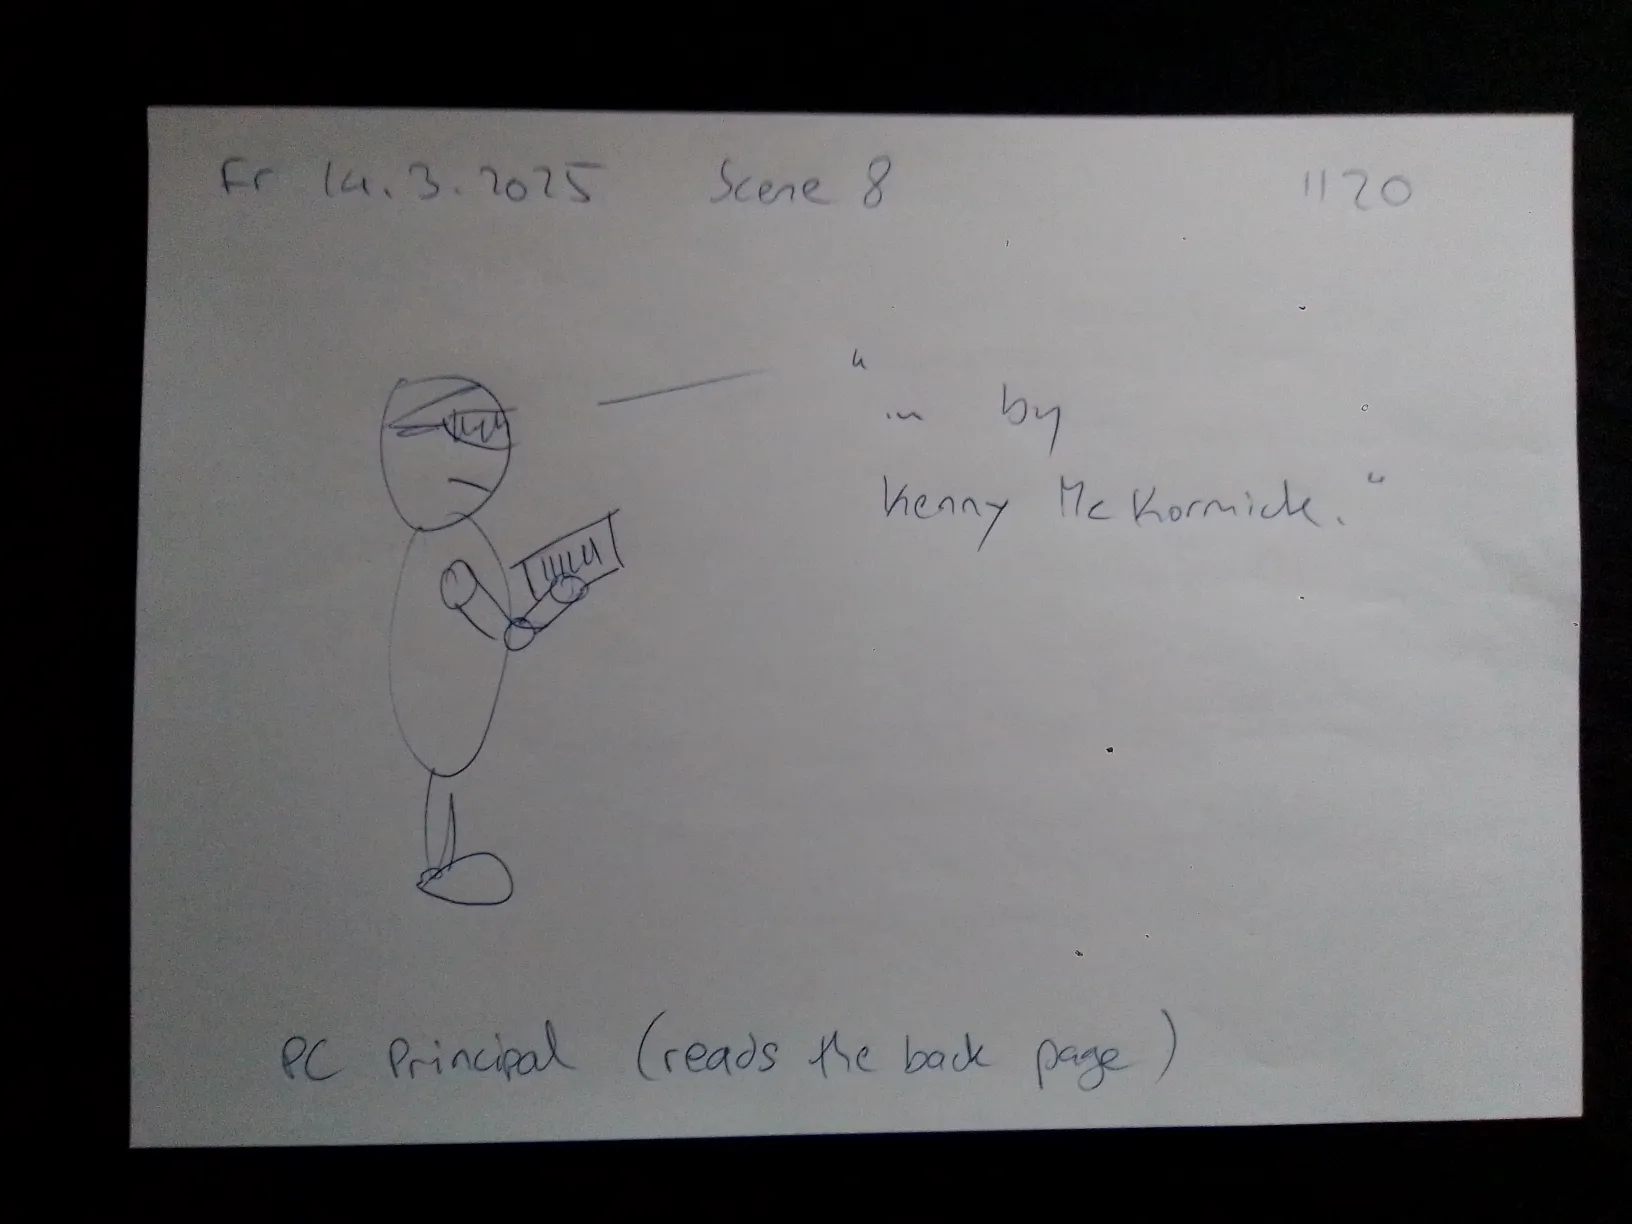 Fr 14.3.2025 Scene 8 1120
"
... by
Kenny McKormick."
PC Principal (reads the back page)